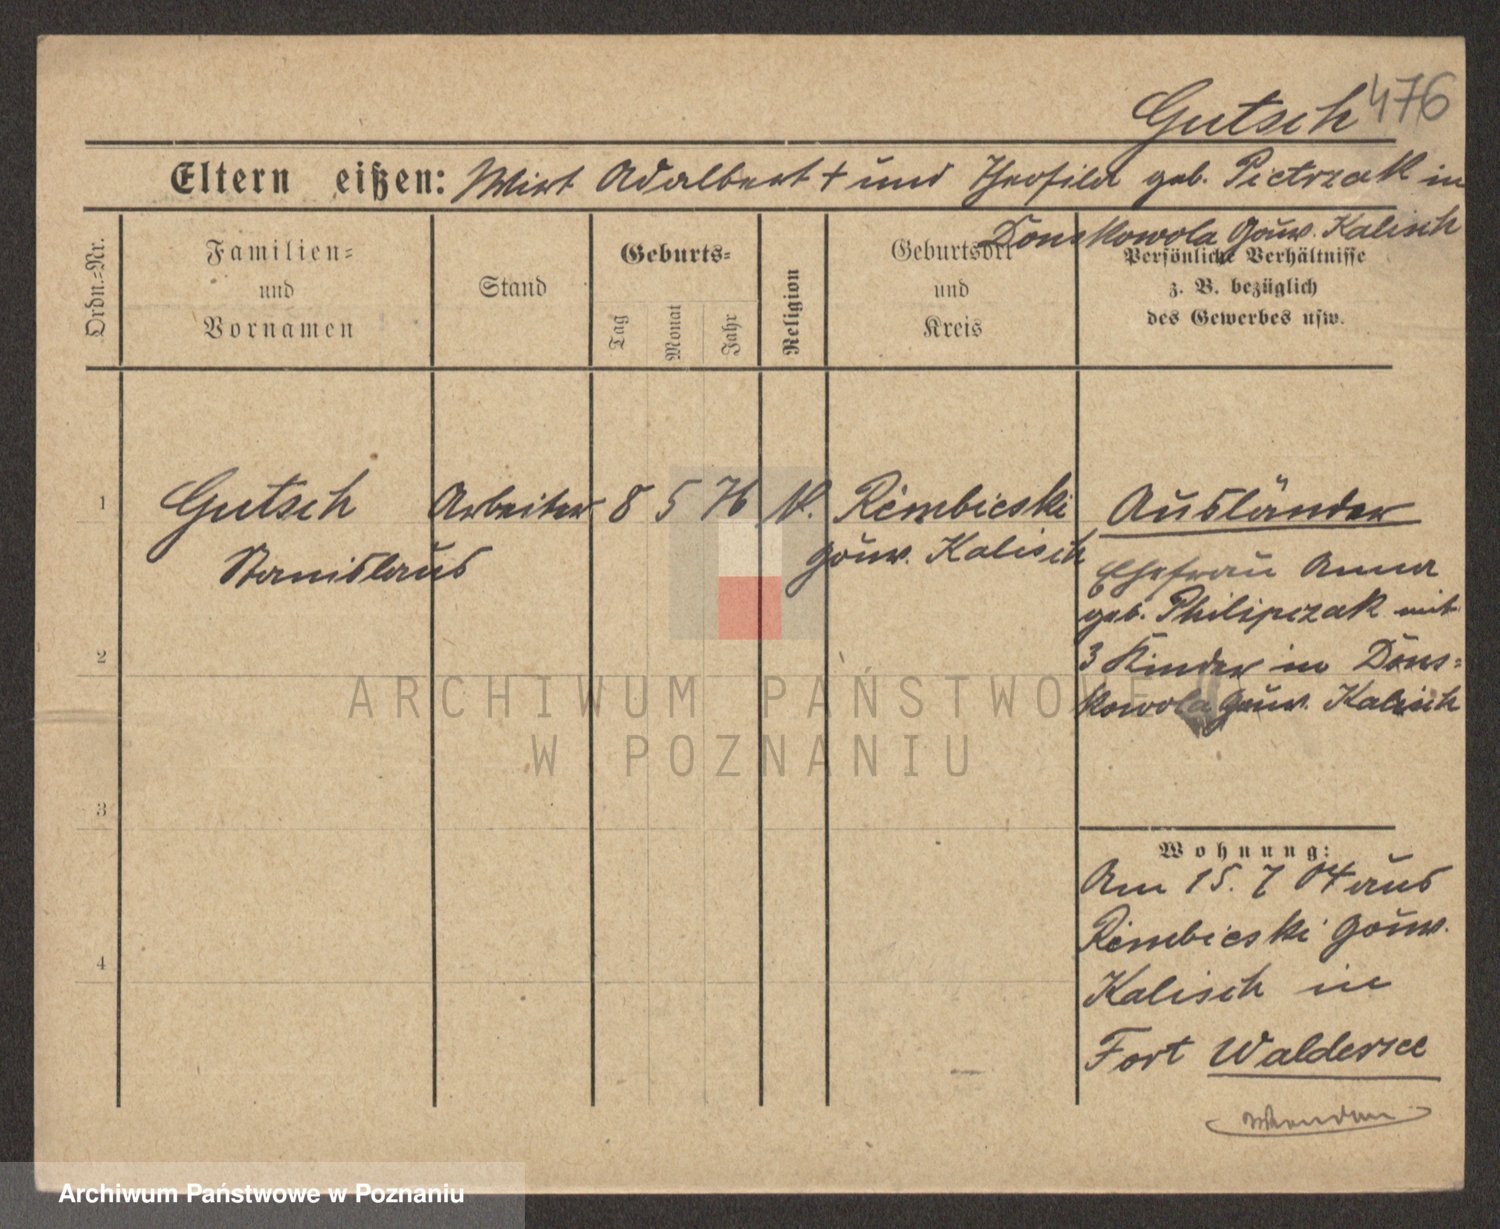 Gutsch 476
Eltern eißen: Wirt Adalbert + und Theofila geb. Pietrzak in
Donskowola Gouw. Kalisch
Ordn.-Nr.
Familien-
und
Vornamen
Stand
Geburts-
Tag
Monat
Jahr
Religion
Geburtsort
und
Kreis
Persönliche Verhältnisse
z. B. bezüglich
des Gewerbes usw.
1
Gutsch Arbeiter 8 5 76 K. Rembieski Ausländer
Stanislaus Gouw. Kalisch
Ehefrau Anna
geb. Philipczak mit
3 Kinder in Dons-
kowola Gouw. Kalisch
2
3
4
Wohnung:
Am 15. 7 04 aus
Rembieski Gouw.
Kalisch in
Fort Waldersee
ARCHIWUM PAŃSTWOWE
W POZNANIU
Archiwum Państwowe w Poznaniu